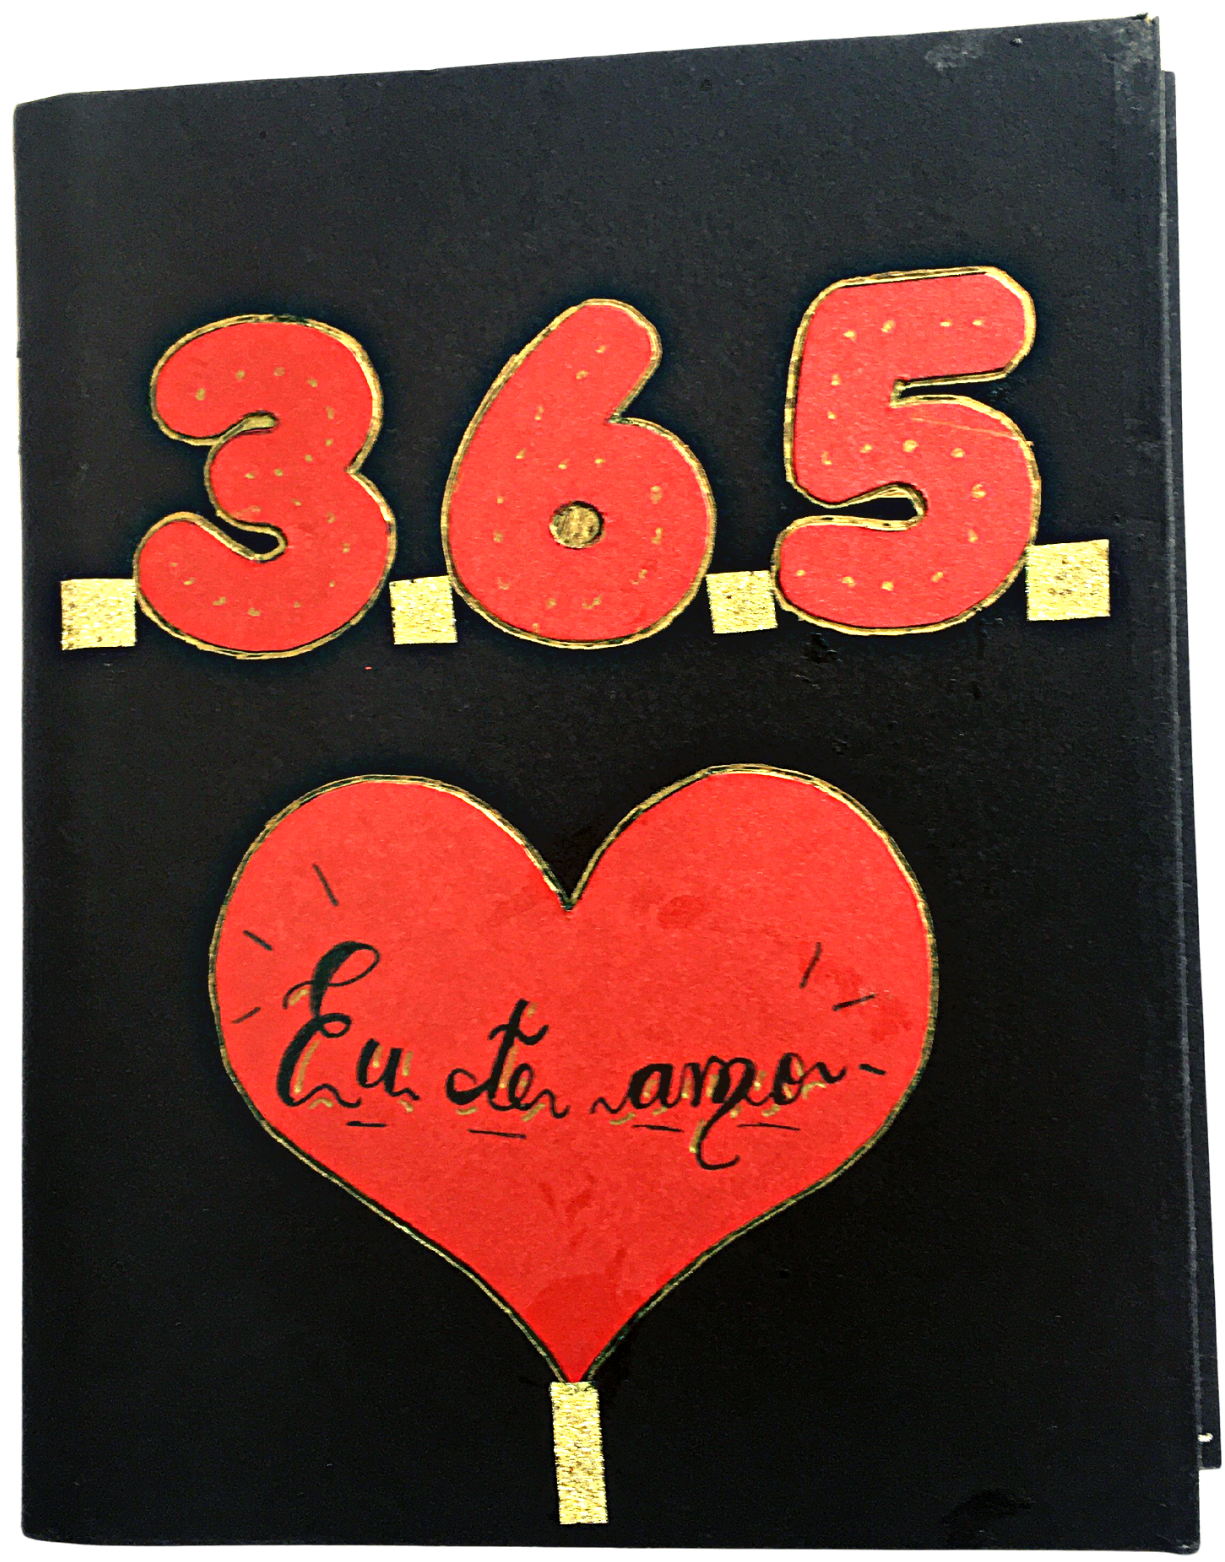 365
Eu te amo